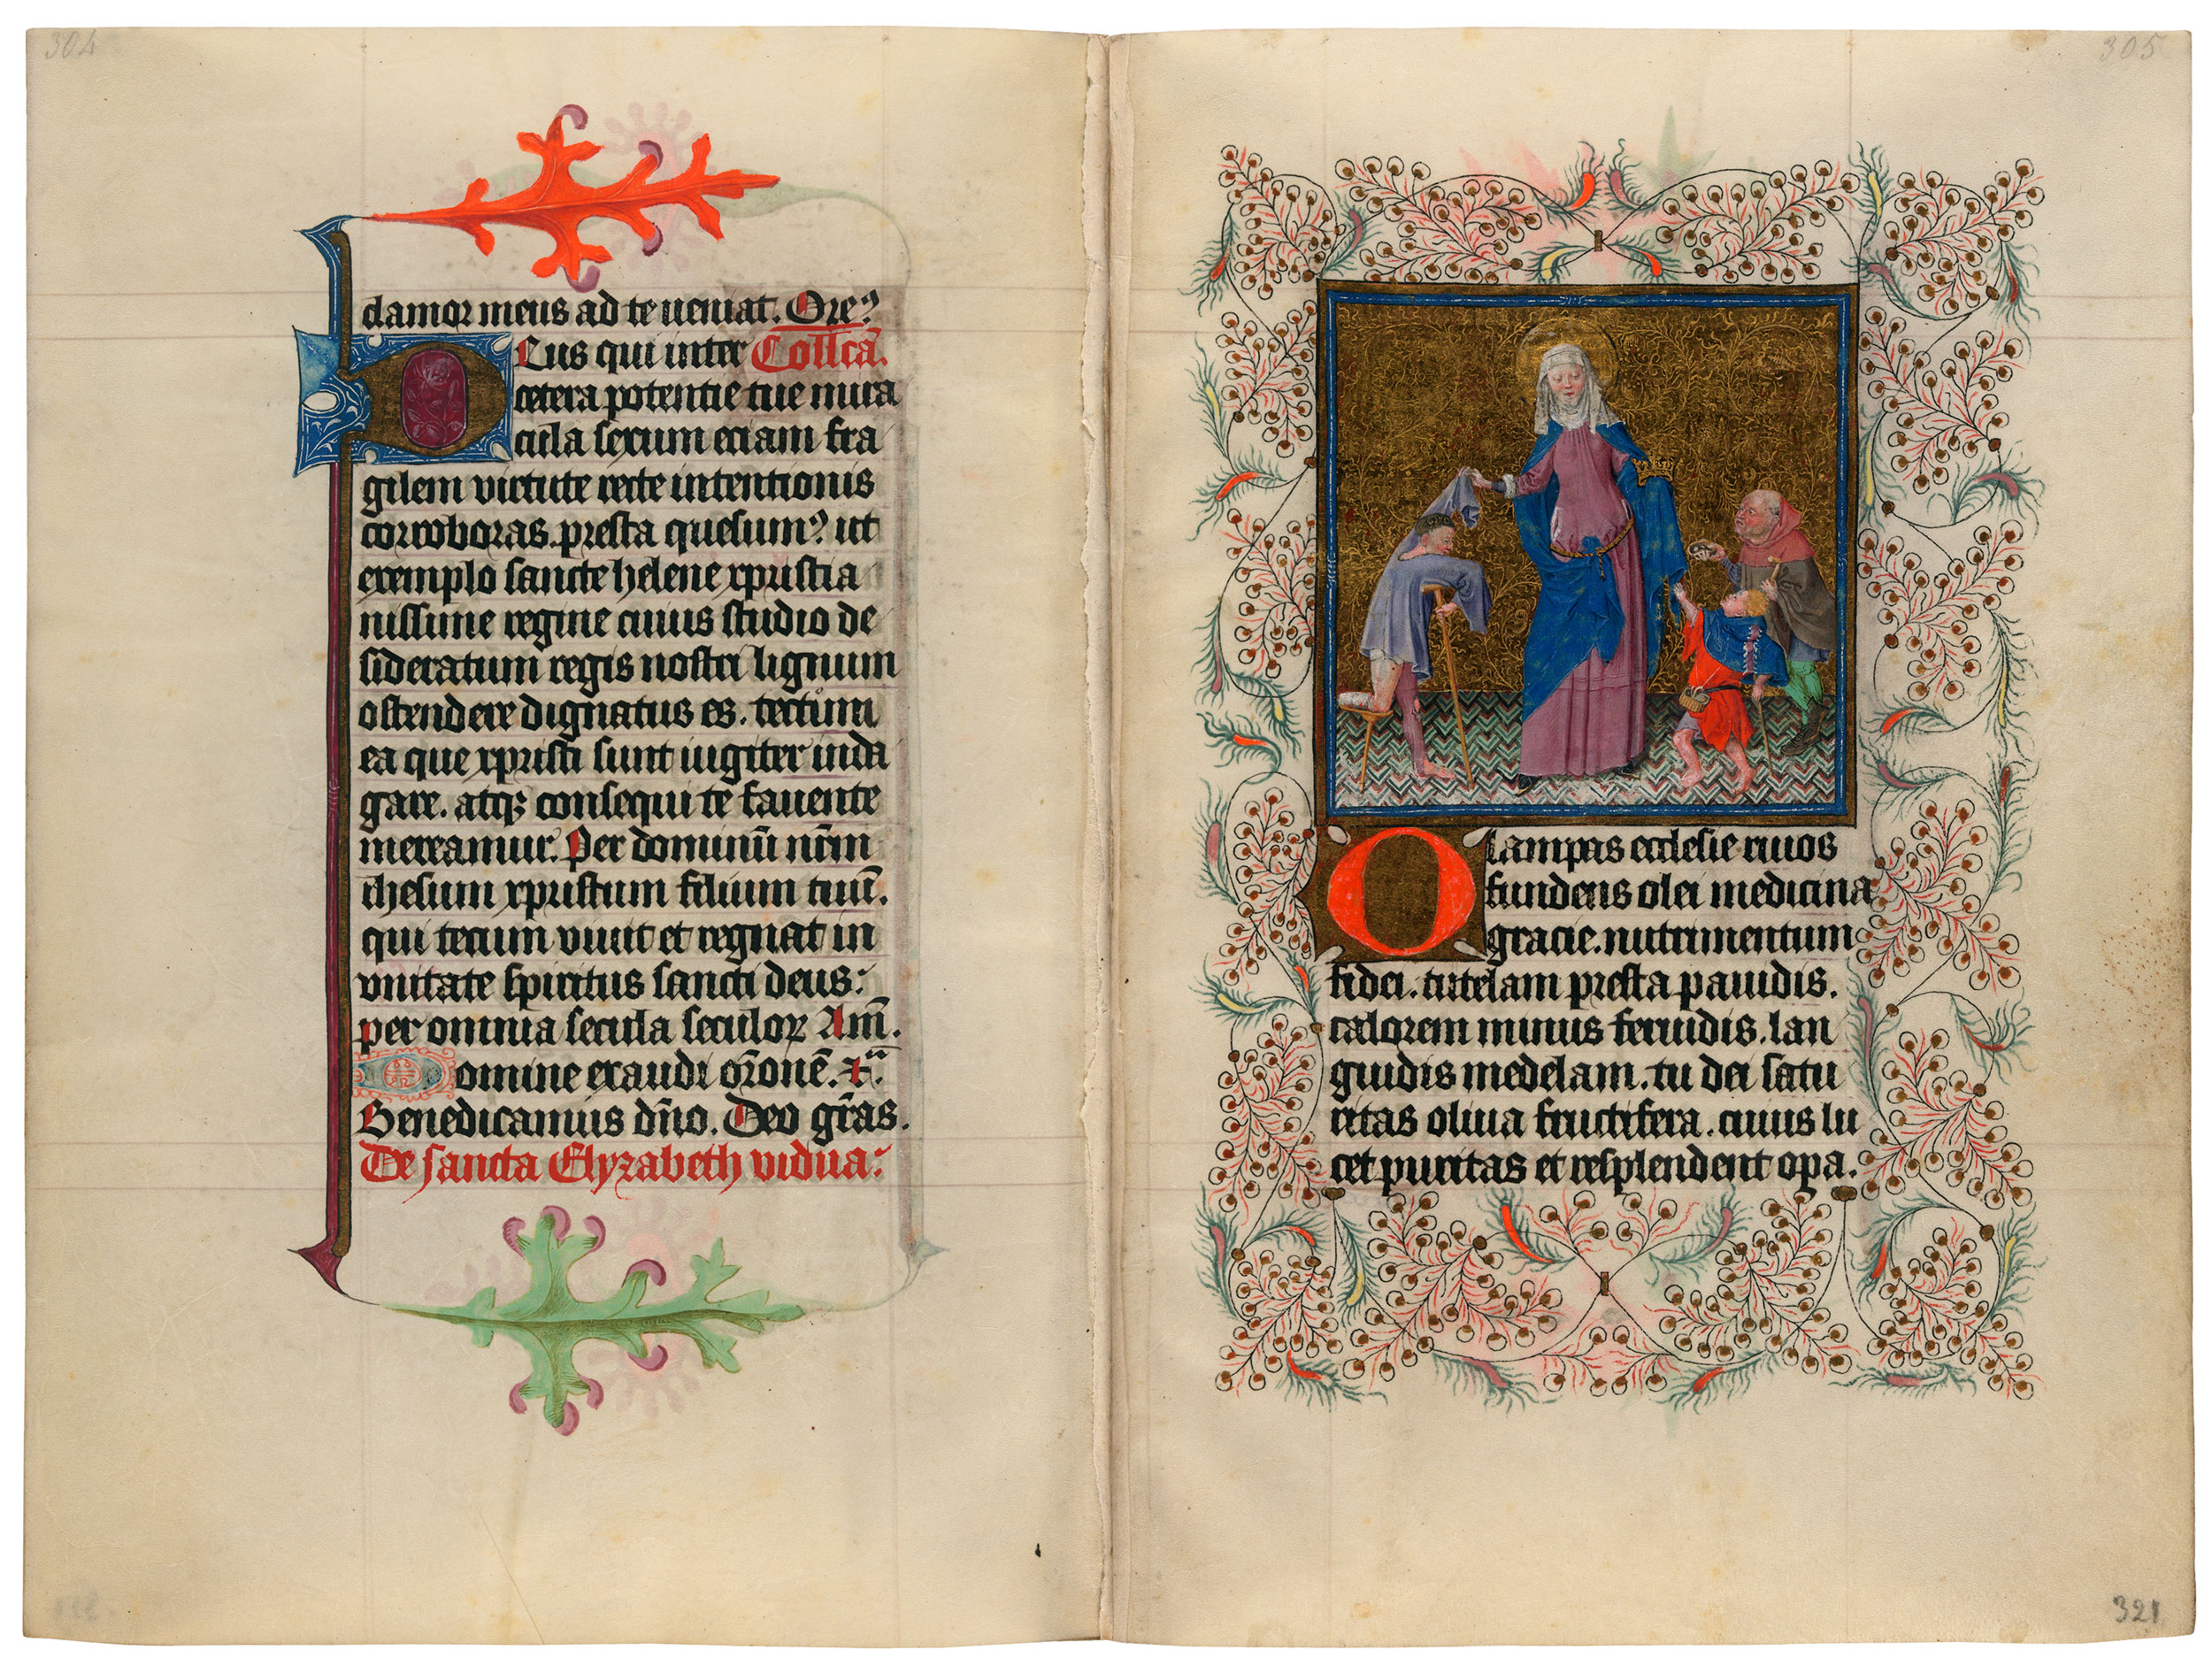 304
clamor meus ad te ueniat. Orem9
DEus qui inter Collcā.
cetera potentie tue mira
cula sexum eciam fra
gilem virtute recte intentionis
corroboras. presta quesum9 ut
exemplo sancte helene xpristia
nissime regine cuius studio de
sideratum regis nostri lignum
ostendere dignatus es. tectum
ea que xpristi sunt iugiter inda
gare. atq; consequi te fauente
mereamur. Per dominū nr̄m
ihesum xpristum filium tuū.
qui tecum viuit et regnat in
vnitate spiritus sancti deus:
per omnia secula seculoꝝ Am̄.
Domine exaudi or̄onē. et c̄
Benedicamus dn̄o. Deo gr̄as.
De sancta Elyzabeth vidua:
305
O lampas ecclesie riuos
fundens olei medicina
gracie. nutrimentum
fidei. tutelam presta pauidis.
calorem minus feruidis. lan
guidis medelam. tu dei satu
ritas oliua fructifera. cuius lu
cet puritas et resplendent opa.
321